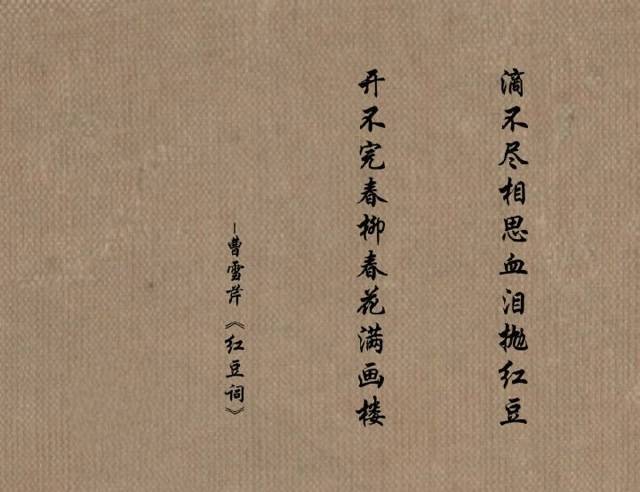 滴不尽相思血泪抛红豆
开不完春柳春花满画楼
–曹雪芹《红豆词》